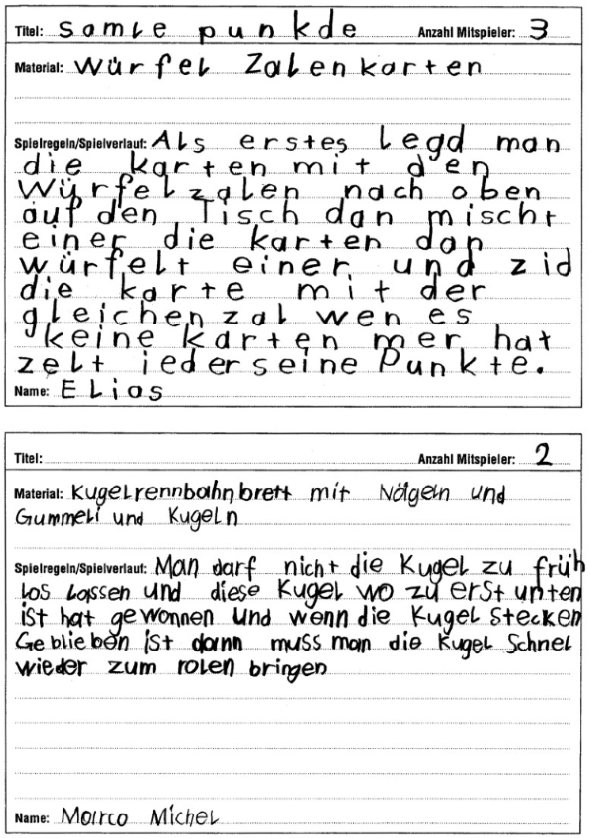 Titel: samle punkde Anzahl Mitspieler: 3
Material: Würfel Zalenkarten
Spielregeln/Spielverlauf: Als erstes legd man
die karten mit den
Würfelzalen nach oben
auf den Tisch dan mischt
einer die karten dan
würfelt einer und zid
die karte mit der
gleichenzal wen es
keine karten mer hat
zelt ieder seine Punkte.
Name: Elias
Titel: Anzahl Mitspieler: 2
Material: Kugelrennbahnbrett mit Nägeln und
Gummeli und Kugeln
Spielregeln/Spielverlauf: Man darf nicht die Kugel zu früh
los lassen und diese Kugel wo zu erst unten
ist hat gewonnen und wenn die Kugel stecken
Geblieben ist dann muss man die Kugel Schnel
wieder zum rolen bringen
Name: Marco Michel